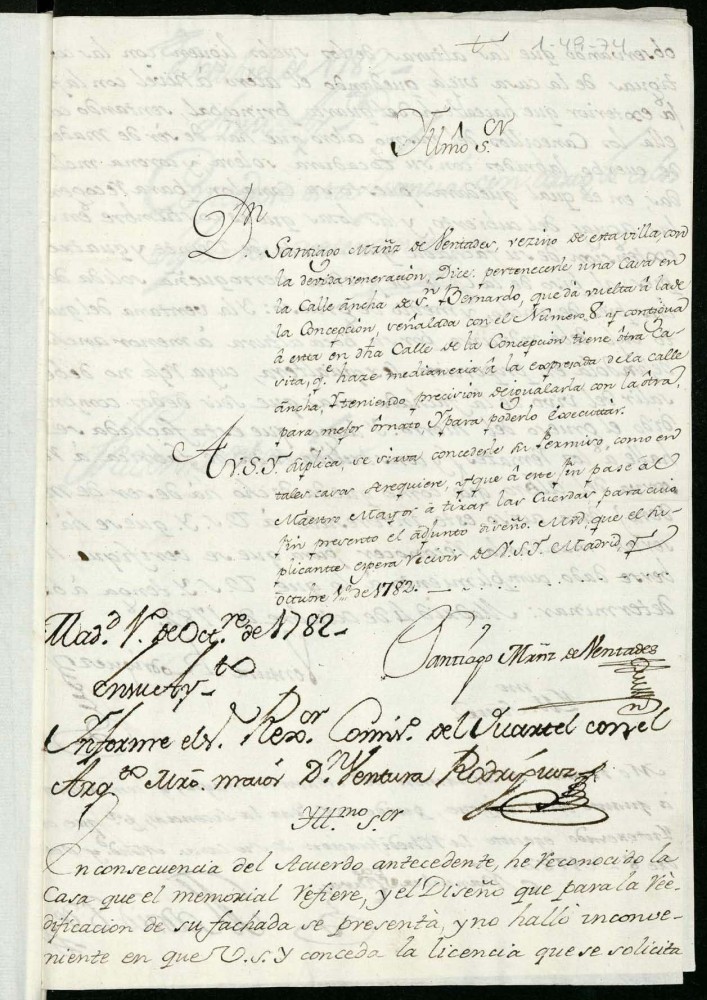 1-49-74
Yllmô s.or
D.n Santiago Mrñz de Ventades, vezino de esta villa, con
la devida veneracion, Dice: pertenecerle una Casa en
la Calle ancha de S.n Bernardo, que dà vuelta â la de
la Concepcion, señalada con el Numero 8 y contigua
â esta en dha Calle de la Concepcion tiene ôtra Ca-
sita, q.e haze medianeria â la expresada de la calle
âncha, Y teniendo precision de igualarla con la ôtra,
para mejor ôrnato, Y para poderlo Executar.
A V.S.Y. suplica, se sirva concederle su Permiso, como en
tales casos se requiere, y que â este fin pase al
Maestro Mayor â tirar las Cuerdas para cuio
fin presento el adjunto diseño. Mrd, que el su-
plicante espera recivir de V.S.Y. Madrid, y
Octubre 1.º de 1782.
Mad.d 1.º de Oct.re de 1782-
Santiago Mrñz de Ventades
En su Ay.to
Ynforme el S. Rex.or Comis.º del Quartel con el
Arq.to Mrô. maior D.n Ventura Rodriguez
Yll.mo S.or
En consecuencia del Acuerdo antecedente, he reconocido la
Casa que el memorial refiere, y el Diseño que para la reè-
dificacion de su fachada se presenta, y no hallo inconve-
niente en que V.S.Y conceda la licencia que se solicita